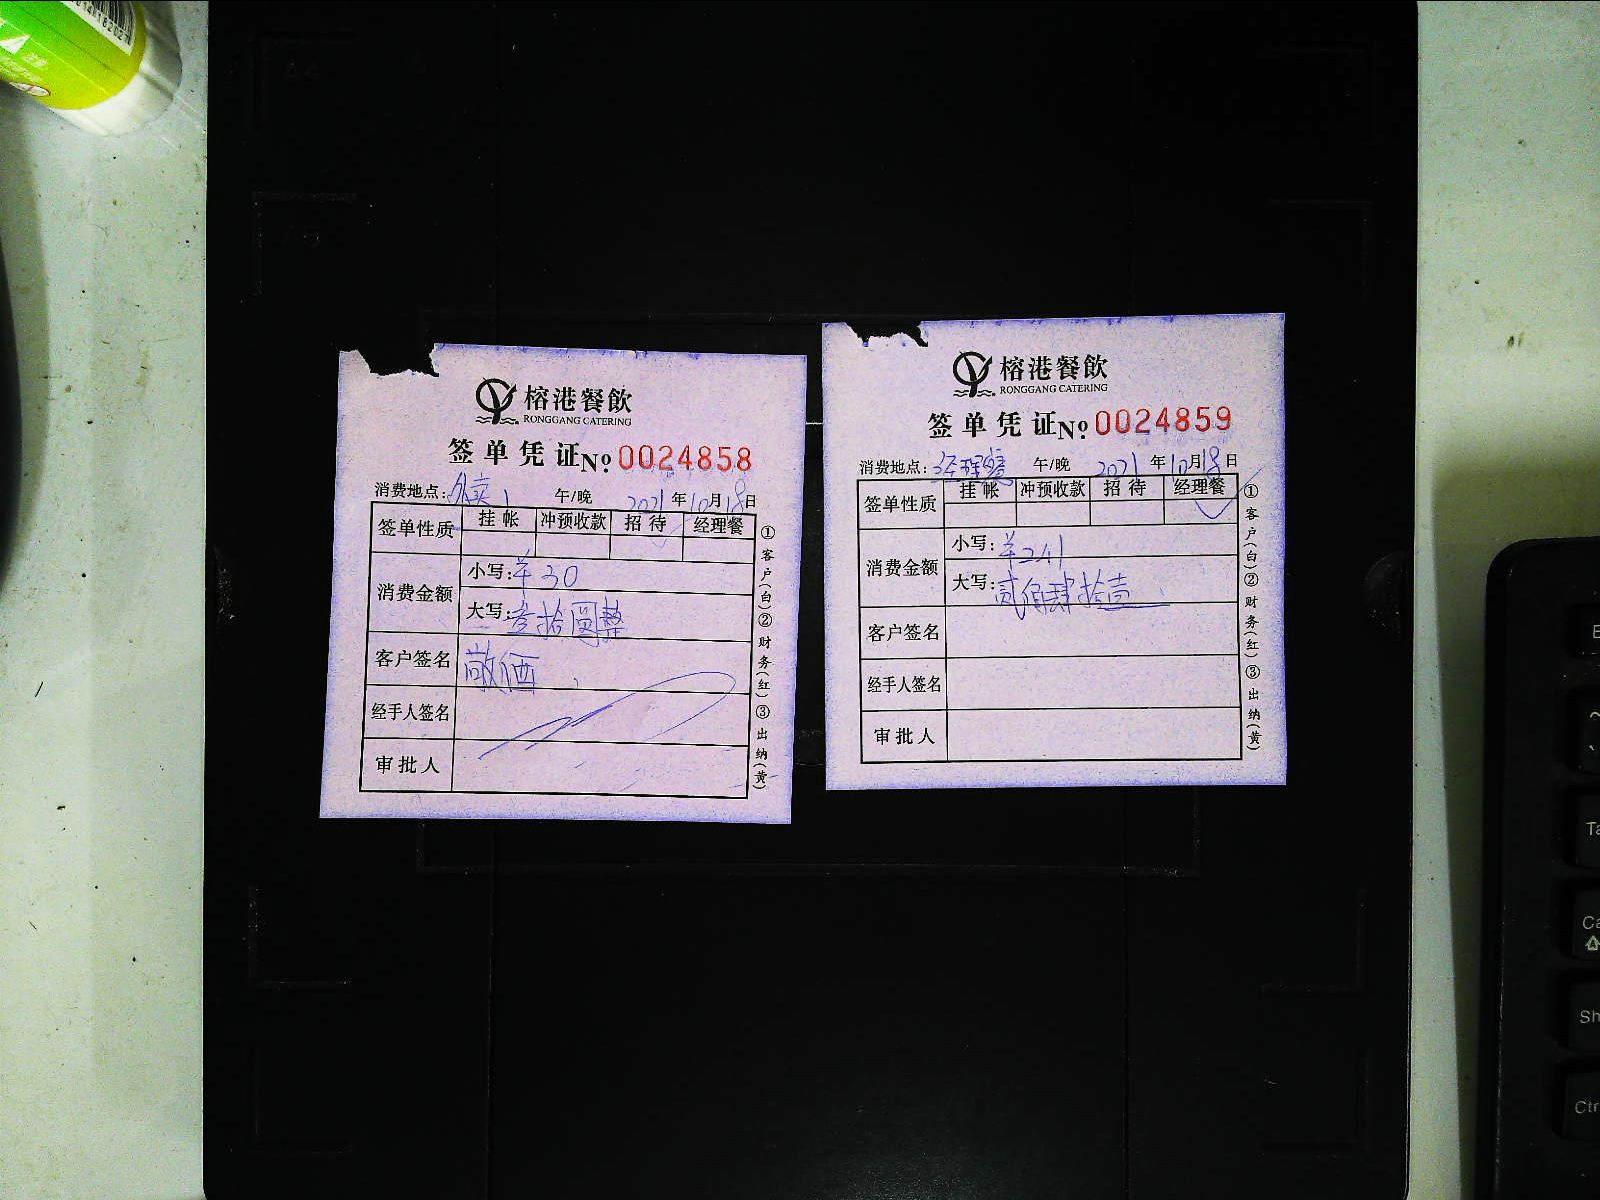 榕港餐飲
RONGGANG CATERING
签单凭证 No 0024858
消费地点: 外卖 午/晚 2021年10月18日
签单性质 挂帐 冲预收款 招待 经理餐
消费金额 小写: ¥30
大写: 叁拾圆整
客户签名
经手人签名
审批人
①客户(白)②财务(红)③出纳(黄)
榕港餐飲
RONGGANG CATERING
签单凭证 No 0024859
消费地点: 经理餐 午/晚 2021年10月18日
签单性质 挂帐 冲预收款 招待 经理餐
消费金额 小写: ¥241
大写: 贰佰肆拾壹
客户签名
经手人签名
审批人
①客户(白)②财务(红)③出纳(黄)